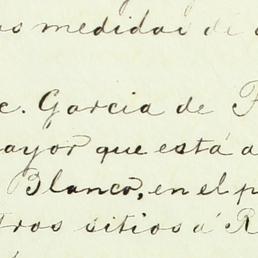 as medidas de
c. Garcia de F
ayor que está a
Blanco, en el p
tros sitios á R